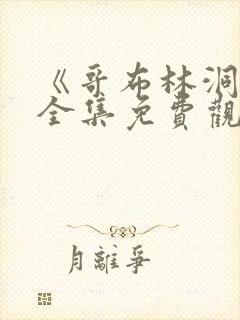 《哥布林洞
全集免費觀
月離爭